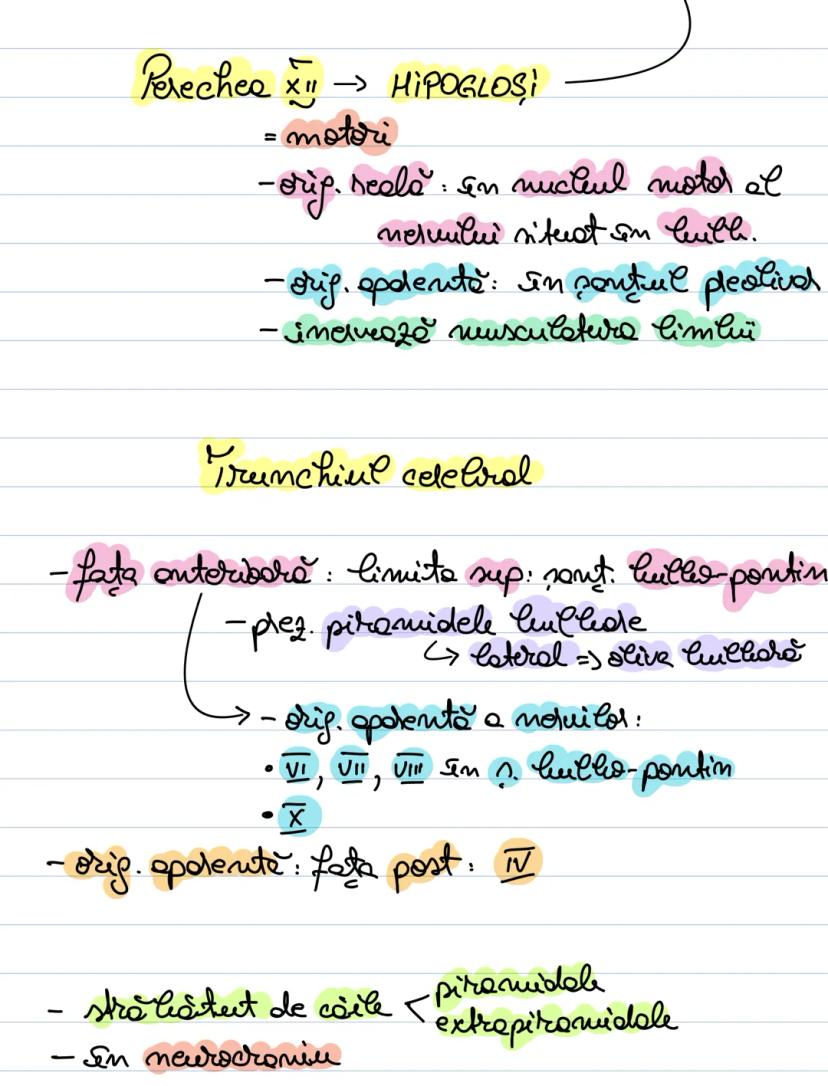 Perechea XII → HIPOGLOȘI
= motori
- orig. reală: în nucleul motor al
nervului situat în bulb.
- orig. aparentă: în șanțul preolivar
- inervează musculatura limbii
Trunchiul cerebral
- fața anterioară: limita sup: șanț. bulbo-pontin
- prez. piramidele bulbare
↳ lateral => oliva bulbară
→ - orig. aparentă a nervilor:
• VI, VII, VIII în ș. bulbo-pontin
• X
- orig. aparentă: fața post: IV
- străbătut de căile < piramidale
extrapiramidale
- în neurocraniu